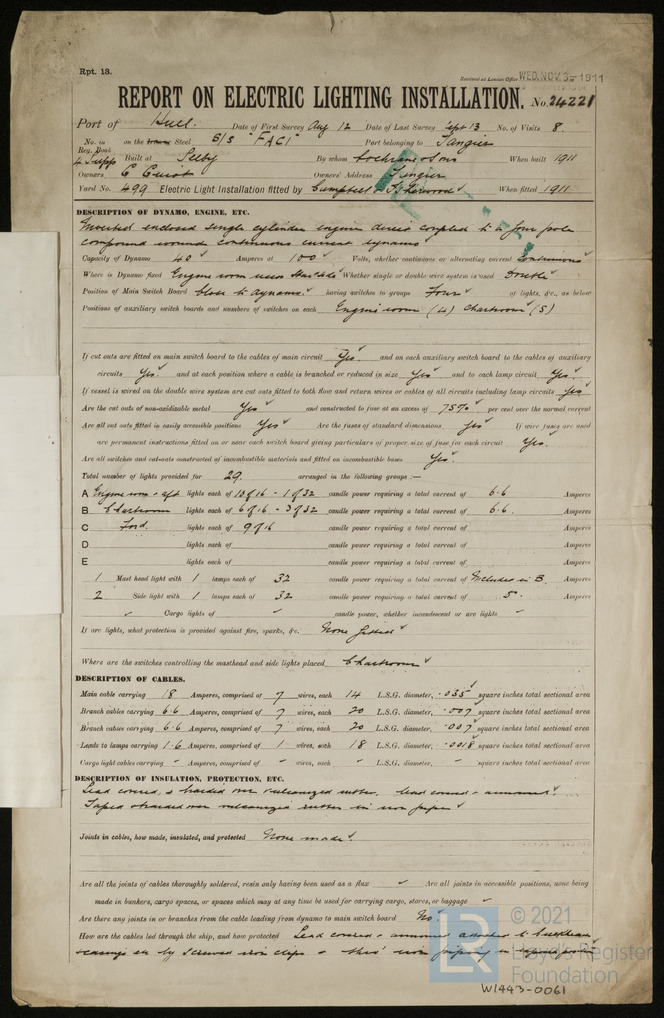 Rpt. 13.
Received at London Office WED. NOV. 3 - 1911
REPORT ON ELECTRIC LIGHTING INSTALLATION. No. 24221
Port of Hull. Date of First Survey Aug 12 Date of Last Survey Sept 13 No. of Visits 8.
No. in Reg. Book on the Iron Steel S/S "FACI" Port belonging to Tangier
4 Supp Built at Selby By whom Cochrane & Sons When built 1911
Owners Owners' Address Tangier
Yard No. 499 Electric Light Installation fitted by Campbell & Isherwood When fitted 1911
DESCRIPTION OF DYNAMO, ENGINE, ETC.
Inverted enclosed single cylinder engine direct coupled to a four pole
compound wound continuous current dynamo
Capacity of Dynamo 40 Amperes at 100 Volts, whether continuous or alternating current Continuous
Where is Dynamo fixed Engine room Whether single or double wire system is used Double
Position of Main Switch Board Close to dynamo. having switches to groups Four of lights, &c., as below
Positions of auxiliary switch boards and numbers of switches on each Engine room (4) Chartroom (5)
If cut outs are fitted on main switch board to the cables of main circuit Yes and on each auxiliary switch board to the cables of auxiliary
circuits Yes. and at each position where a cable is branched or reduced in size Yes and to each lamp circuit Yes.
If vessel is wired on the double wire system are cut outs fitted to both flow and return wires or cables of all circuits including lamp circuits Yes
Are the cut outs of non-oxidizable metal Yes and constructed to fuse at an excess of 75% per cent over the normal current
Are all cut outs fitted in easily accessible positions Yes Are the fuses of standard dimensions Yes If wire fuses are used
are permanent instructions fitted on or near each switch board giving particulars of proper size of fuse for each circuit Yes.
Are all switches and cut-outs constructed of incombustible materials and fitted on incombustible bases Yes.
Total number of lights provided for 29. arranged in the following groups :—
A Engine room & aft lights each of 10 of 16 - 1 of 32 candle power requiring a total current of 6.6 Amperes
B Chartroom lights each of 6 of 16 - 3 of 32 candle power requiring a total current of 6.6. Amperes
C Ford. lights each of 9 of 16 candle power requiring a total current of Amperes
D lights each of candle power requiring a total current of Amperes
E lights each of candle power requiring a total current of Amperes
1 Mast head light with 1 lamps each of 32 candle power requiring a total current of Included in B. Amperes
2 Side light with 1 lamps each of 32 candle power requiring a total current of 5. Amperes
Cargo lights of candle power, whether incandescent or arc lights
If arc lights, what protection is provided against fire, sparks, &c. None fitted
Where are the switches controlling the masthead and side lights placed Chartroom
DESCRIPTION OF CABLES.
Main cable carrying 18 Amperes, comprised of 7 wires, each 14 L.S.G. diameter, .035 square inches total sectional area
Branch cables carrying 6.6 Amperes, comprised of 7 wires, each 20 L.S.G. diameter, .007 square inches total sectional area
Branch cables carrying 6.6 Amperes, comprised of 7 wires, each 20 L.S.G. diameter, .007 square inches total sectional area
Leads to lamps carrying 1.6 Amperes, comprised of 1 wires, each 18 L.S.G. diameter, .0018 square inches total sectional area
Cargo light cables carrying - Amperes, comprised of - wires, each - L.S.G. diameter, - square inches total sectional area
DESCRIPTION OF INSULATION, PROTECTION, ETC.
Lead covered, & braided over vulcanized rubber, lead covered & armoured.
Taped & braided over vulcanized rubber in iron pipe
Joints in cables, how made, insulated, and protected None made.
Are all the joints of cables thoroughly soldered, resin only having been used as a flux Are all joints in accessible positions, none being
made in bunkers, cargo spaces, or spaces which may at any time be used for carrying cargo, stores, or baggage
Are there any joints in or branches from the cable leading from dynamo to main switch board No
How are the cables led through the ship, and how protected Lead covered & armoured attached to bulkhead
casings etc by screwed iron clips & thro' iron piping in
© 2021
LR
Lloyd's Register
Foundation
W1443-0061